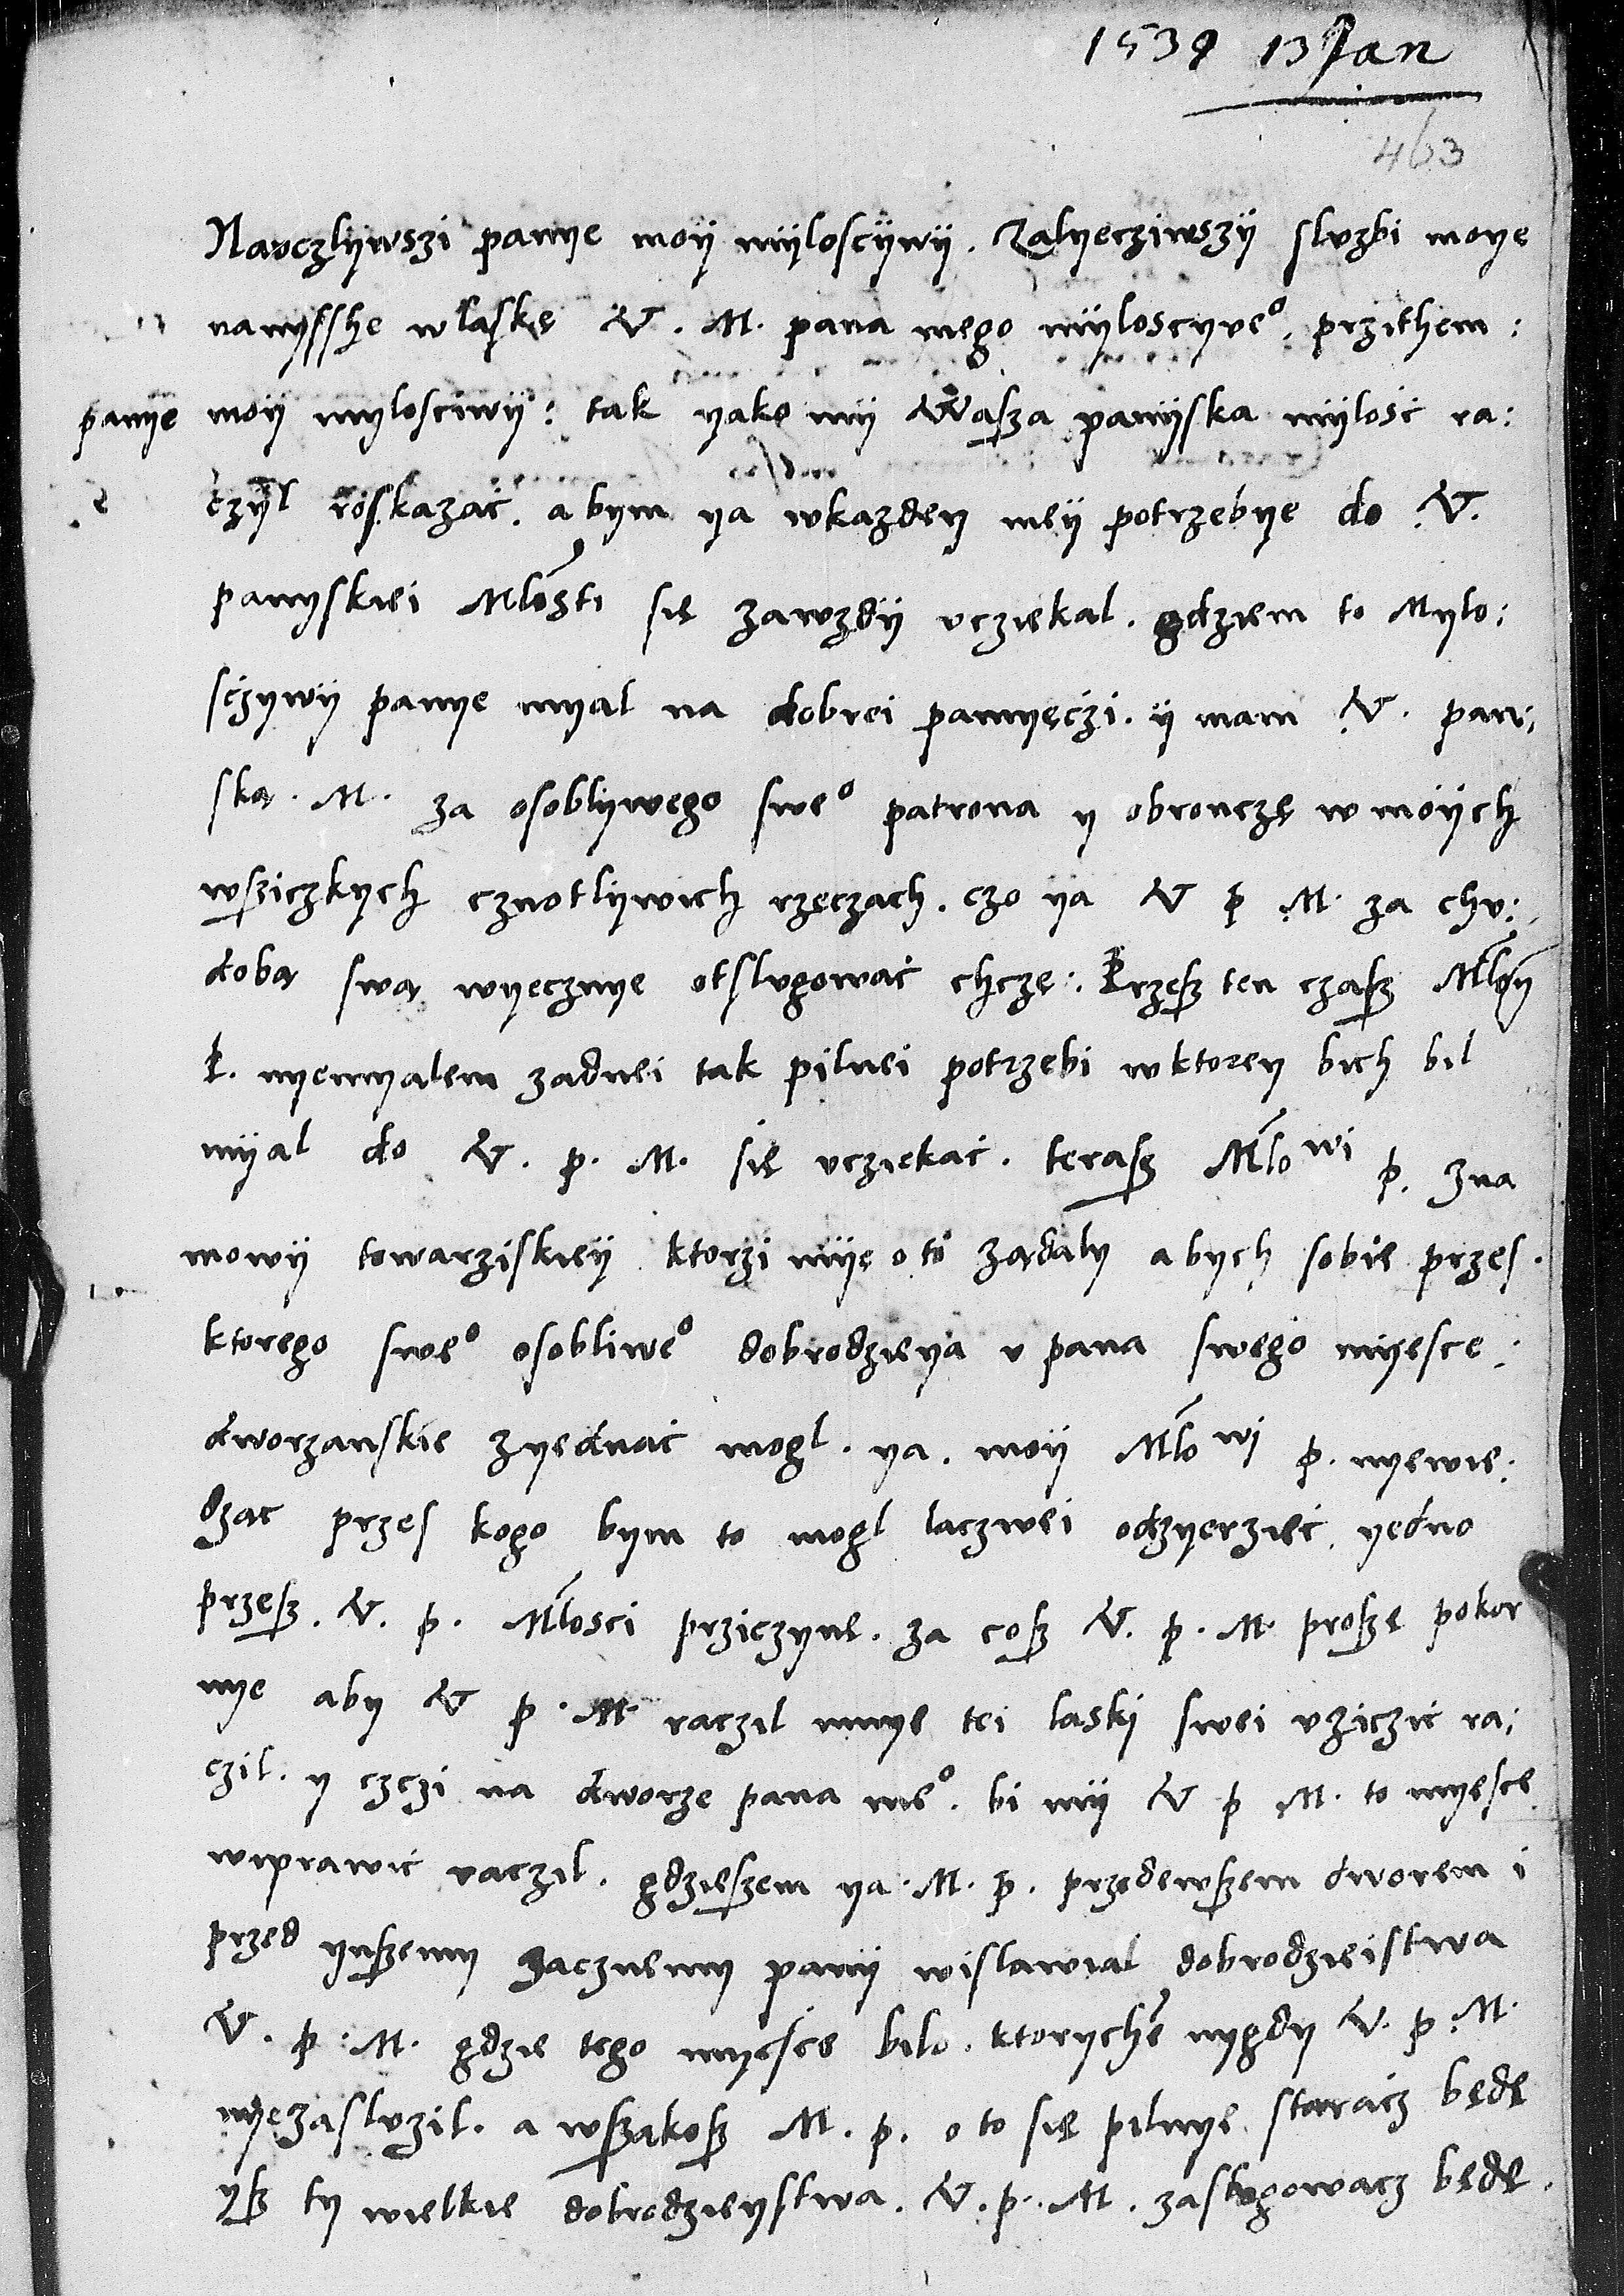 1539 13 Jan
463
Navczlywszi panye moÿ mÿloscÿwÿ. Zalyecziwszÿ slvzbi moye
nanysshe w laskę V. M. pana mego mÿloscyveᵒ. przithem:
panye moÿ myloscziwÿ: tak yako mÿ Wasza panÿska mÿlosć ra:
czÿl roskazać. abym ya wkazdey meÿ potrzebye do V.
panyskiei Mlosti się zawzdÿ vcziekal. gdziem to Mylo:
sćzywÿ panye myal na dobrei pamyęczi. ÿ mam V. pan:
ską. M. za osoblywego sweᵒ patrona y obronczę w moÿch
wsziczkych cznotlywich rzeczach. czo ya V p M. za chv:
dobą swą wyecznye otslvgować chczę: Przesz ten czasz Mlẏ
P. nyemyalem zadnei tak pilnei potrzebi wktorey bich bil
mÿal do V. p. M. się vcziekać. terasz Mlowi p. zna
mowÿ towarziskieÿ ktorzi mÿę o to ządaly abych sobie przes.
ktorego sweᵒ osobliweᵒ dobrodzieya v pana swego mÿesce:
dworzanskie zyednać mogl. ya. moÿ Mlowi p. nyewie:
dzac przes kogo bym to mogl laczwei odzyerzieć yedno
przesz. V. p. Mlosci prziczynę. za cosz V. p. M. proszę pokor
nye aby V p. M. raczil mnye tei laski swei vziczić ra:
czil. y czczi na dworze pana meᵒ. bi mÿ V p M. to myesce
wiprawić raczil. gdzieszem ya. M. p. przedewszem dworem i
przed ynszemy zacznemy panÿ wislawial dobrodzieistwa
V. p. M. gdzie tego myesce bilo. ktorychē nygdy V. p. M.
nyezaslvzil. a wszakosz M. p. o to się pilnye staracz będę
ysz ty wielkie dobrodzieystwa. V. p. M. zaslvgowacz będę.